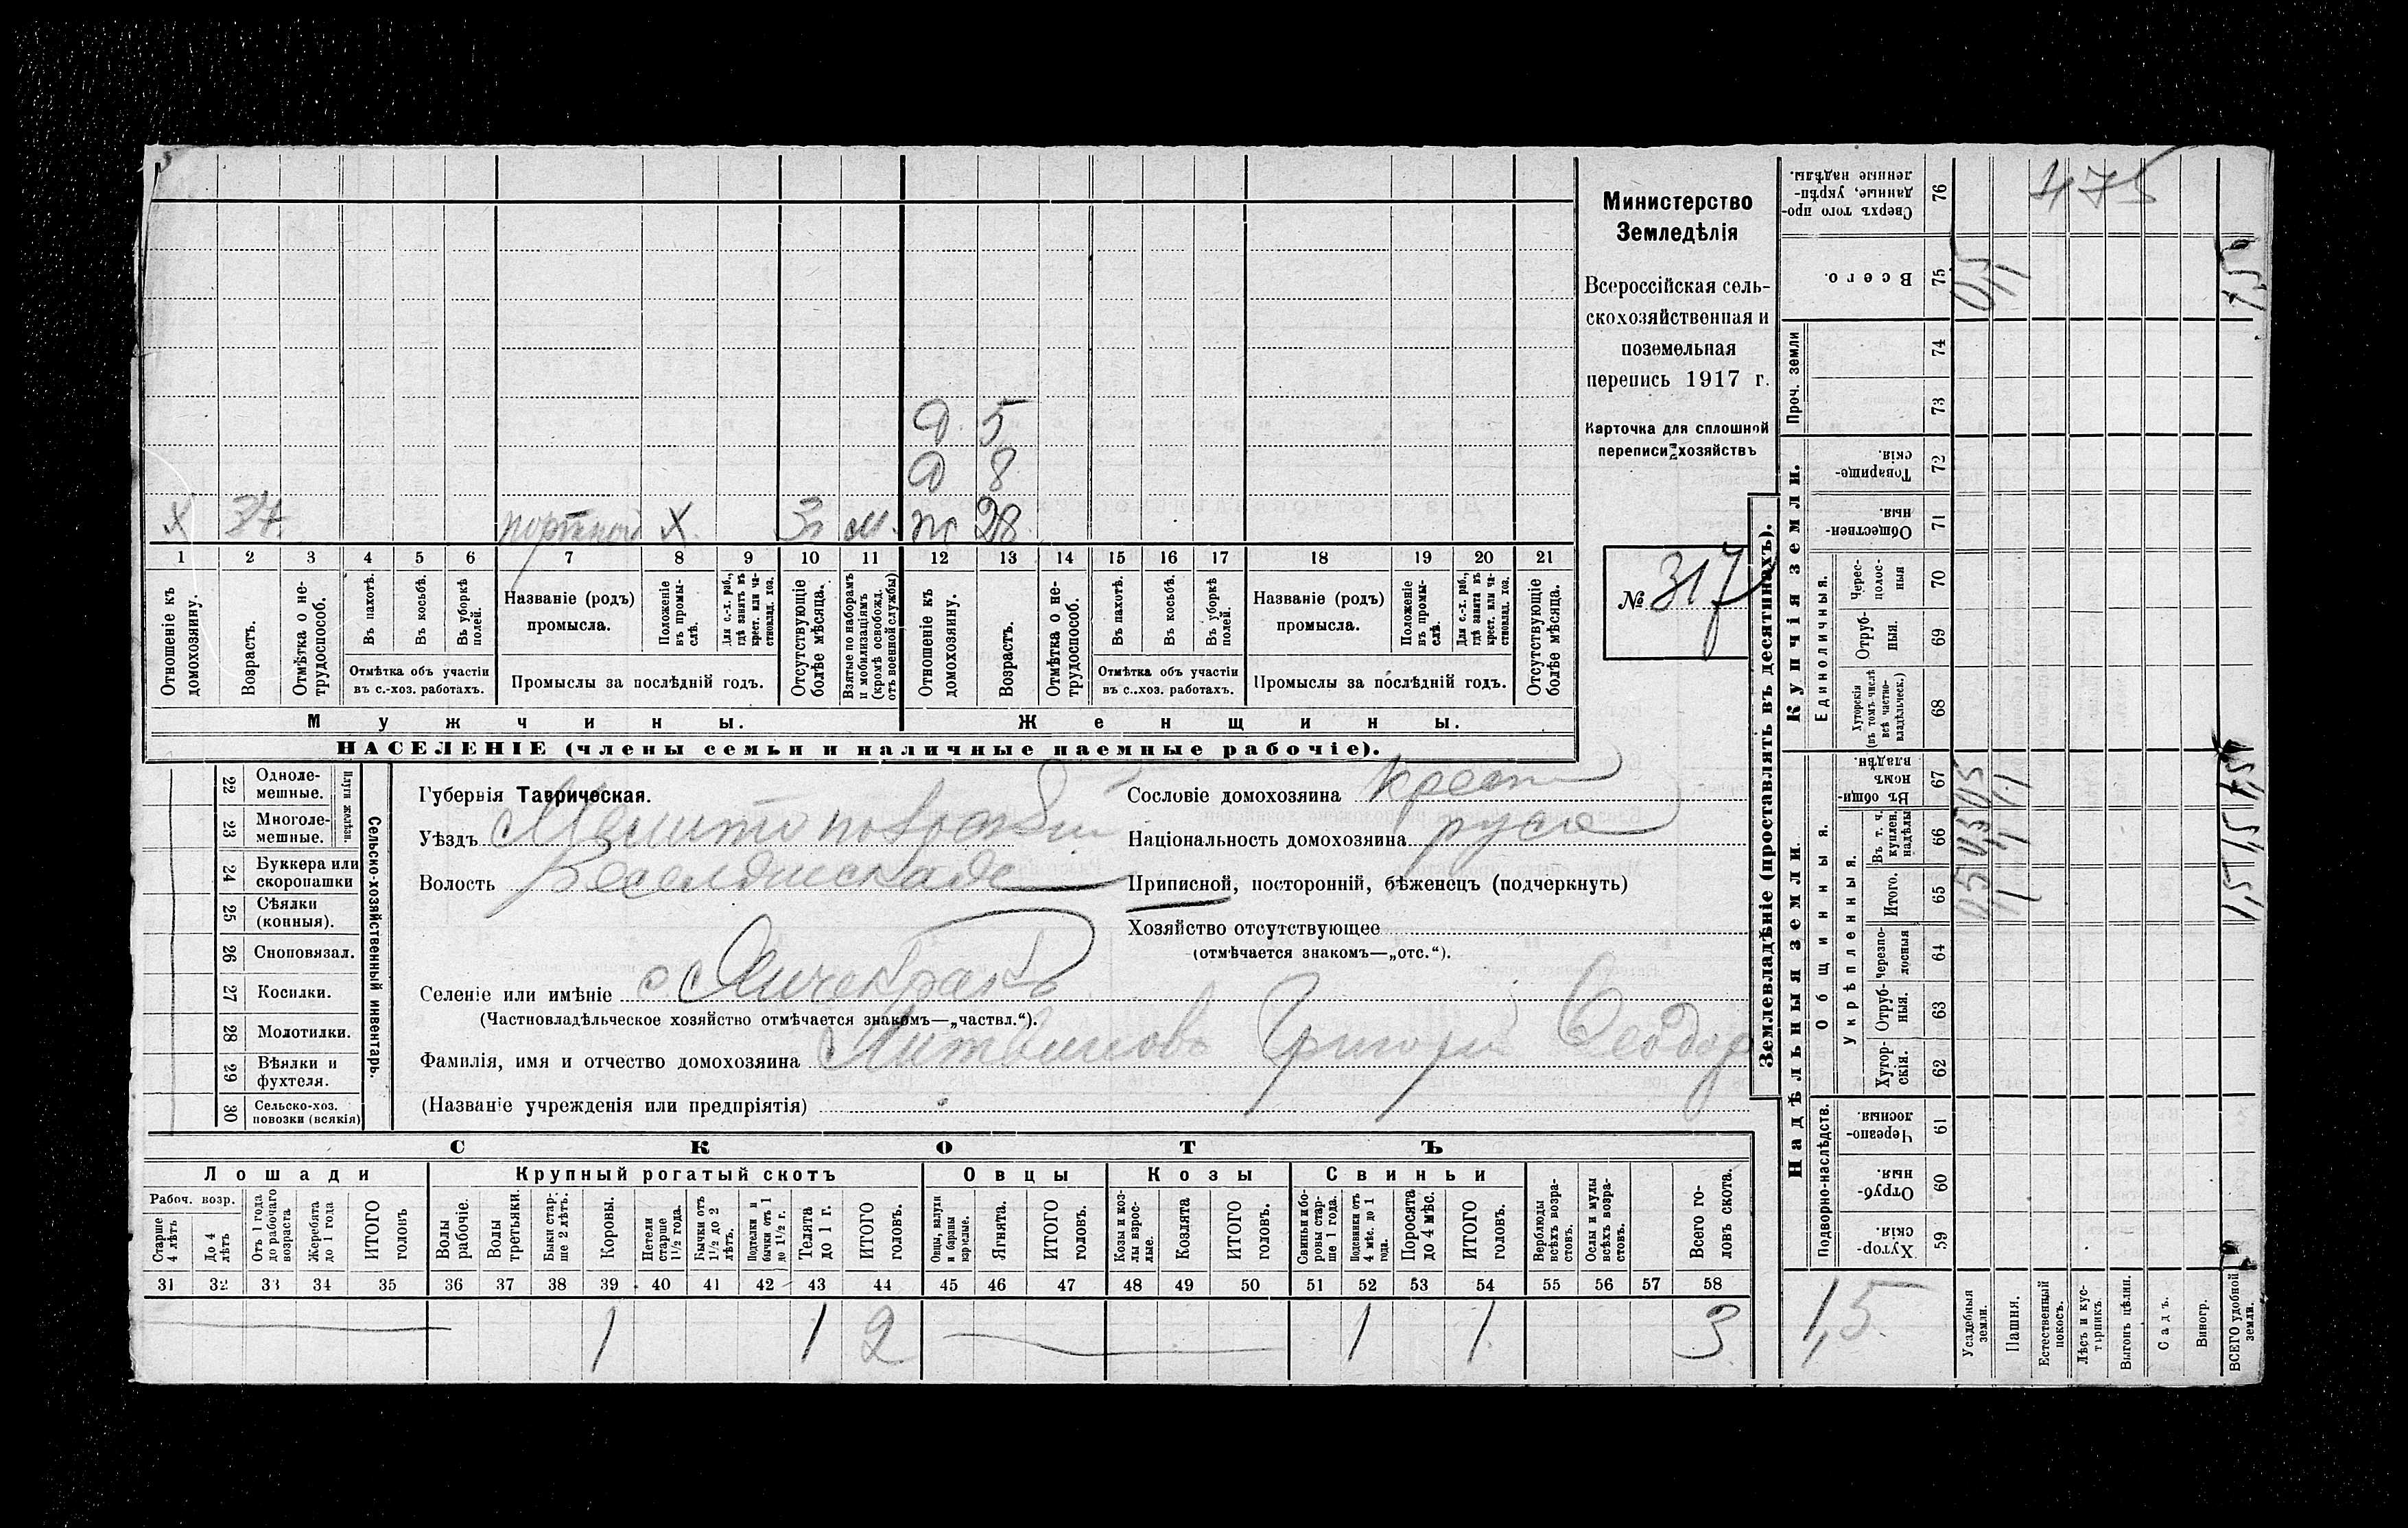 Министерство
Земледѣлія
Всероссійская сель-
скохозяйственная и
поземельная
перепись 1917 г.
Карточка для сплошной
переписи хозяйствъ
№ 317
д. 5
д 8
х 37 портной х. 3 м. ж 28
1 2 3 4 5 6 7 8 9 10 11 12 13 14 15 16 17 18 19 20 21
Отношеніе къ домохозяину.
Возрастъ.
Отмѣтка о не-трудоспособ.
Въ пахотѣ.
Въ косьбѣ.
Въ уборкѣ полей.
Отмѣтка объ участіи
въ с.-хоз. работахъ.
Названіе (родъ)
промысла.
Положеніе въ промы-слѣ.
Для с.-х. раб., гдѣ занятъ въ крест. или ча-стновлад. хоз.
Промыслы за послѣдній годъ.
Отсутствующіе болѣе мѣсяца.
Взятые по наборамъ и мобилизаціямъ (кромѣ освобожд. отъ военной службы)
Отношеніе къ домохозяину.
Возрастъ.
Отмѣтка о не-трудоспособ.
Въ пахотѣ.
Въ косьбѣ.
Въ уборкѣ полей.
Отмѣтка объ участіи
въ с..хоз. работахъ.
Названіе (родъ)
промысла.
Положеніе въ промы-слѣ.
Для с.-х. раб., гдѣ занята въ крест. или ча-стновлад. хоз.
Промыслы за послѣдній годъ.
Отсутствующіе болѣе мѣсяца.
Мужчины. Женщины.
НАСЕЛЕНІЕ (члены семьи и наличные наемные рабочіе).
Сельско-хозяйственный инвентарь.
Плуги желѣзн.
22 Одноле-мешные.
23 Многоле-мешные.
24 Буккера или скоропашки
25 Сѣялки (конныя).
26 Сноповязал.
27 Косилки.
28 Молотилки.
29 Вѣялки и фухтеля.
30 Сельско-хоз. повозки (всякія)
Губернія Таврическая.
Уѣздъ Мелитопольскій
Волость
Селеніе или имѣніе с. Янчекракъ
(Частновладѣльческое хозяйство отмѣчается знакомъ—„частвл.“).
Фамилія, имя и отчество домохозяина Литвиновъ Григорій Ѳеодор
(Названіе учрежденія или предпріятія)
Сословіе домохозяина крест
Національность домохозяина руск
Приписной, посторонній, бѣженецъ (подчеркнуть)
Хозяйство отсутствующее
(отмѣчается знакомъ—„отс.“).
СКОТЪ
Лошади Крупный рогатый скотъ Овцы Козы Свиньи
Рабоч. возр.
Старше 4 лѣтъ
До 4 лѣтъ
Отъ 1 года до рабочаго возраста
Жеребята до 1 года
ИТОГО головъ
Волы рабочіе.
Волы третьяки.
Быки стар-ше 2 лѣтъ.
Коровы.
Нетели старше 1½ года.
Бычки отъ 1½ до 2 лѣтъ.
Подтелки и бычки отъ 1 до 1½ г.
Телята до 1 г.
ИТОГО головъ.
Овцы, валухи и бараны взрослые.
Ягнята.
ИТОГО головъ.
Козы и коз-лы взрос-лые.
Козлята
ИТОГО головъ.
Свиньи и бо-ровы стар-ше 1 года.
Подсвинки отъ 4 мѣс. до 1 года.
Поросята до 4 мѣс.
ИТОГО головъ.
Верблюды всѣхъ возра-стовъ.
Ослы и мулы всѣхъ возра-стовъ.
Всего го-ловъ скота.
31 32 33 34 35 36 37 38 39 40 41 42 43 44 45 46 47 48 49 50 51 52 53 54 55 56 57 58
1 1 2 1 1 3
Землевладѣніе (проставлять въ десятинахъ).
Купчія земли.
Надѣльныя земли.
Сверхъ того про-данные, укрѣп-ленные надѣлы. 76
475
Всего. 75
0,5
Проч. земли 74 73
Товарище-скія 72
Обществен-ныя. 71
Единоличныя.
Черес-полос-ныя 70
Отруб-ныя. 69
Хуторскія (въ томъ числѣ всѣ частно-владѣльческ.) 68
Общинныя.
Въ общи-номъ владѣн. 67
Укрѣпленныя.
Въ т. ч. куплен. надѣлы 66
Итого. 65
Черезпо-лосныя 64
Отруб-ныя. 63
Хутор-скія. 62
Подворно-наслѣдств.
Черезпо-лосныя 61
Отруб-ныя. 60
Хутор-скія. 59
1,5
Усадебныя земли.
Пашня.
Естественный покосъ.
Лѣсъ и кус-тарникъ.
Выгонъ цѣлин.
Садъ.
Виногр.
ВСЕГО удобной земли.